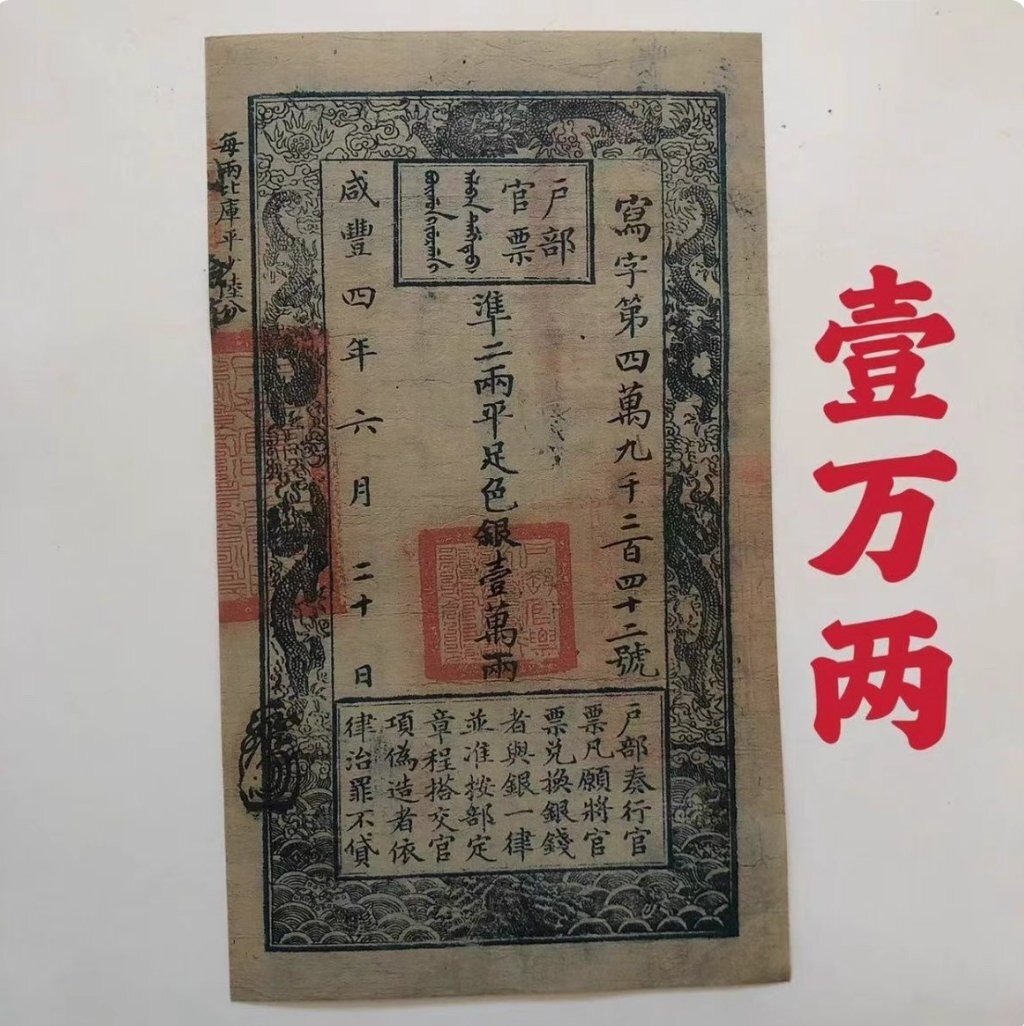 户部
官票
寫字第四萬九千二百四十二號
準二兩平足色銀壹萬兩
咸豐四年六月二十日
户部奏行官
票凡願將官
票兑換銀錢
者與銀一律
並准按部定
章程搭交官
項偽造者依
律治罪不貸
每兩比庫平少陸分
壹万两